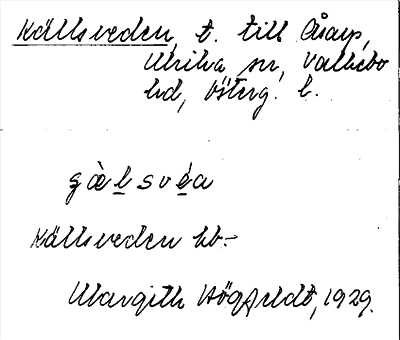 Källsveden, t. till Åsarp,
Ulrika sn, Valkebo
hd, Österg. l.
gàlsvéa
Källsveden hb.-
Margith Högfeldt, 1929.